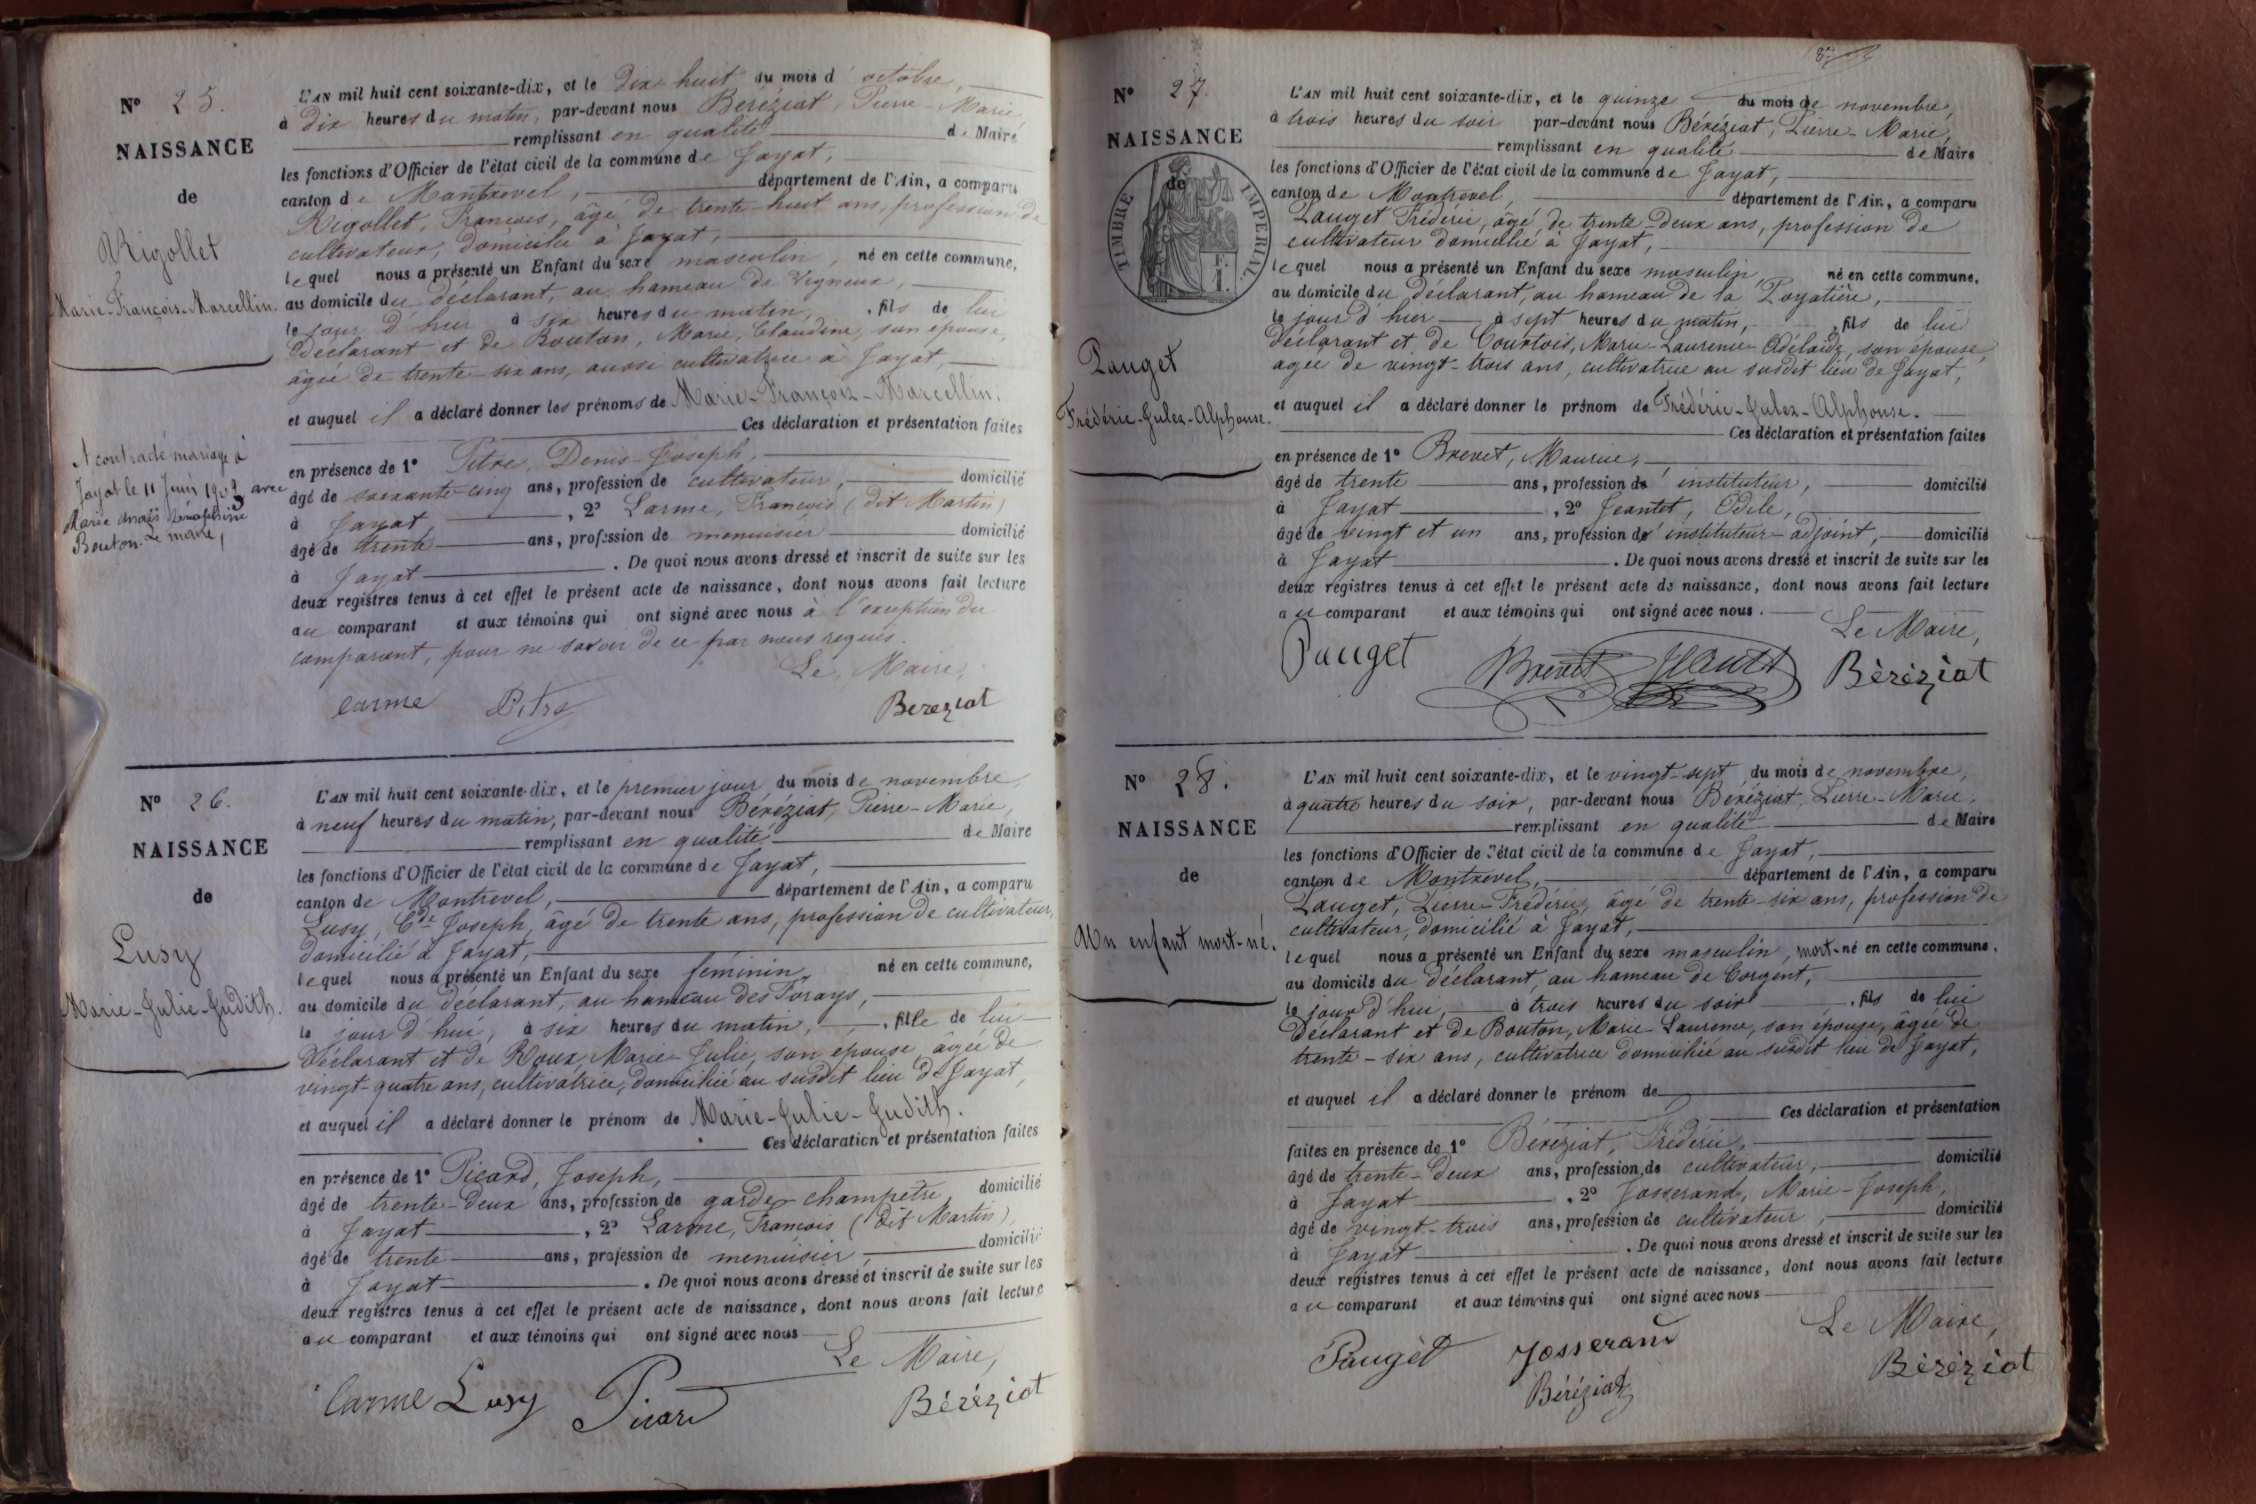 N° 25.
NAISSANCE
de
Rigollet
Marie-François-Marcellin.
A contracté mariage à
Jayat le 11 Juin 1902 avec
Marie
Bouton. Le maire,
L'AN mil huit cent soixante-dix, et le dix huit du mois d'octobre,
à dix heures du matin, par-devant nous Béréziat, Pierre-Marie,
remplissant en qualité de Maire
les fonctions d'Officier de l'état civil de la commune de Jayat,
canton de Montrevel, département de l'Ain, a comparu
Rigollet, François, âgé de trente-huit ans, profession de
cultivateur, domicilié à Jayat,
lequel nous a présenté un Enfant du sexe masculin, né en cette commune,
au domicile du déclarant, au hameau de Vigneux,
le jour d'hier à six heures du matin, fils de lui
Déclarant et de Bouton, Marie, Claudine, son épouse,
âgée de trente-six ans, aussi cultivatrice à Jayat,
et auquel il a déclaré donner les prénoms de Marie-François-Marcellin.
Ces déclaration et présentation faites
en présence de 1° Pitre, Denis-Joseph,
âgé de soixante-cinq ans, profession de cultivateur, domicilié
à Jayat, 2° Larme, François (dit Martin)
âgé de trente ans, profession de menuisier domicilié
à Jayat. De quoi nous avons dressé et inscrit de suite sur les
deux registres tenus à cet effet le présent acte de naissance, dont nous avons fait lecture
au comparant et aux témoins qui ont signé avec nous à l'exception du
comparant, pour ne savoir de ce par nous requis.
Le Maire,
Carme Pitre Béréziat
N° 26.
NAISSANCE
de
Lusy
Marie-Julie-Judith.
L'AN mil huit cent soixante-dix, et le premier jour du mois de novembre,
à neuf heures du matin, par-devant nous Béréziat, Pierre-Marie,
remplissant en qualité de Maire
les fonctions d'Officier de l'état civil de la commune de Jayat,
canton de Montrevel, département de l'Ain, a comparu
Lusy, Cde Joseph, âgé de trente ans, profession de cultivateur,
domicilié à Jayat,
lequel nous a présenté un Enfant du sexe féminin, né en cette commune,
au domicile du déclarant, au hameau des Forays,
le jour d'hui, à six heures du matin, fille de lui
Déclarant et de Roux, Marie-Julie, son épouse, âgée de
vingt-quatre ans, cultivatrice, domiciliée au susdit lieu de Jayat,
et auquel il a déclaré donner le prénom de Marie-Julie-Judith.
Ces déclaration et présentation faites
en présence de 1° Picard, Joseph,
âgé de trente-deux ans, profession de garde-champêtre domicilié
à Jayat, 2° Larme, François (dit Martin),
âgé de trente ans, profession de menuisier, domicilié
à Jayat. De quoi nous avons dressé et inscrit de suite sur les
deux registres tenus à cet effet le présent acte de naissance, dont nous avons fait lecture
au comparant et aux témoins qui ont signé avec nous
Le Maire,
Carme Lusy Picard Béréziat
N° 27.
NAISSANCE
de
TIMBRE IMPERIAL
Pauget
Frédéric-Jules-Alphonse.
L'AN mil huit cent soixante-dix, et le quinze du mois de novembre,
à trois heures du soir par-devant nous Béréziat, Pierre-Marie,
remplissant en qualité de Maire
les fonctions d'Officier de l'état civil de la commune de Jayat,
canton de Montrevel, département de l'Ain, a comparu
Pauget Frédéric, âgé de trente-deux ans, profession de
cultivateur domicilié à Jayat,
lequel nous a présenté un Enfant du sexe masculin, né en cette commune,
au domicile du déclarant, au hameau de la Poyatière,
le jour d'hier à sept heures du matin, fils de lui
déclarant et de Courtois, Marie-Laurence-Adélaïde, son épouse,
âgée de vingt-trois ans, cultivatrice au susdit lieu de Jayat,
et auquel il a déclaré donner le prénom de Frédéric-Jules-Alphonse.
Ces déclaration et présentation faites
en présence de 1° Brevet, Maurice,
âgé de trente ans, profession d'instituteur, domicilié
à Jayat, 2° Jeantet, Odile,
âgé de vingt et un ans, profession d'instituteur-adjoint, domicilié
à Jayat. De quoi nous avons dressé et inscrit de suite sur les
deux registres tenus à cet effet le présent acte de naissance, dont nous avons fait lecture
au comparant et aux témoins qui ont signé avec nous.
Le Maire,
Pauget Brevet Béréziat
N° 28.
NAISSANCE
de
Un enfant mort-né.
L'AN mil huit cent soixante-dix, et le vingt-sept du mois de novembre,
à quatre heures du soir, par-devant nous Béréziat, Pierre-Marie,
remplissant en qualité de Maire
les fonctions d'Officier de l'état civil de la commune de Jayat,
canton de Montrevel, département de l'Ain, a comparu
Pauget, Pierre-Frédéric, âgé de trente-six ans, profession de
cultivateur, domicilié à Jayat,
lequel nous a présenté un Enfant du sexe masculin, mort-né en cette commune,
au domicile du déclarant, au hameau de Corgent,
le jour d'hui, à trois heures du soir, fils de lui
Déclarant et de Bouton, Marie-Laurence, son épouse, âgée de
trente-six ans, cultivatrice domiciliée au susdit lieu de Jayat,
et auquel il a déclaré donner le prénom de
Ces déclaration et présentation
faites en présence de 1° Béréziat, Frédéric,
âgé de trente-deux ans, profession de cultivateur, domicilié
à Jayat, 2° Josserand, Marie-Joseph,
âgé de vingt-trois ans, profession de cultivateur, domicilié
à Jayat. De quoi nous avons dressé et inscrit de suite sur les
deux registres tenus à cet effet le présent acte de naissance, dont nous avons fait lecture
au comparant et aux témoins qui ont signé avec nous
Le Maire,
Pauget Josserand Béréziat
Béréziat